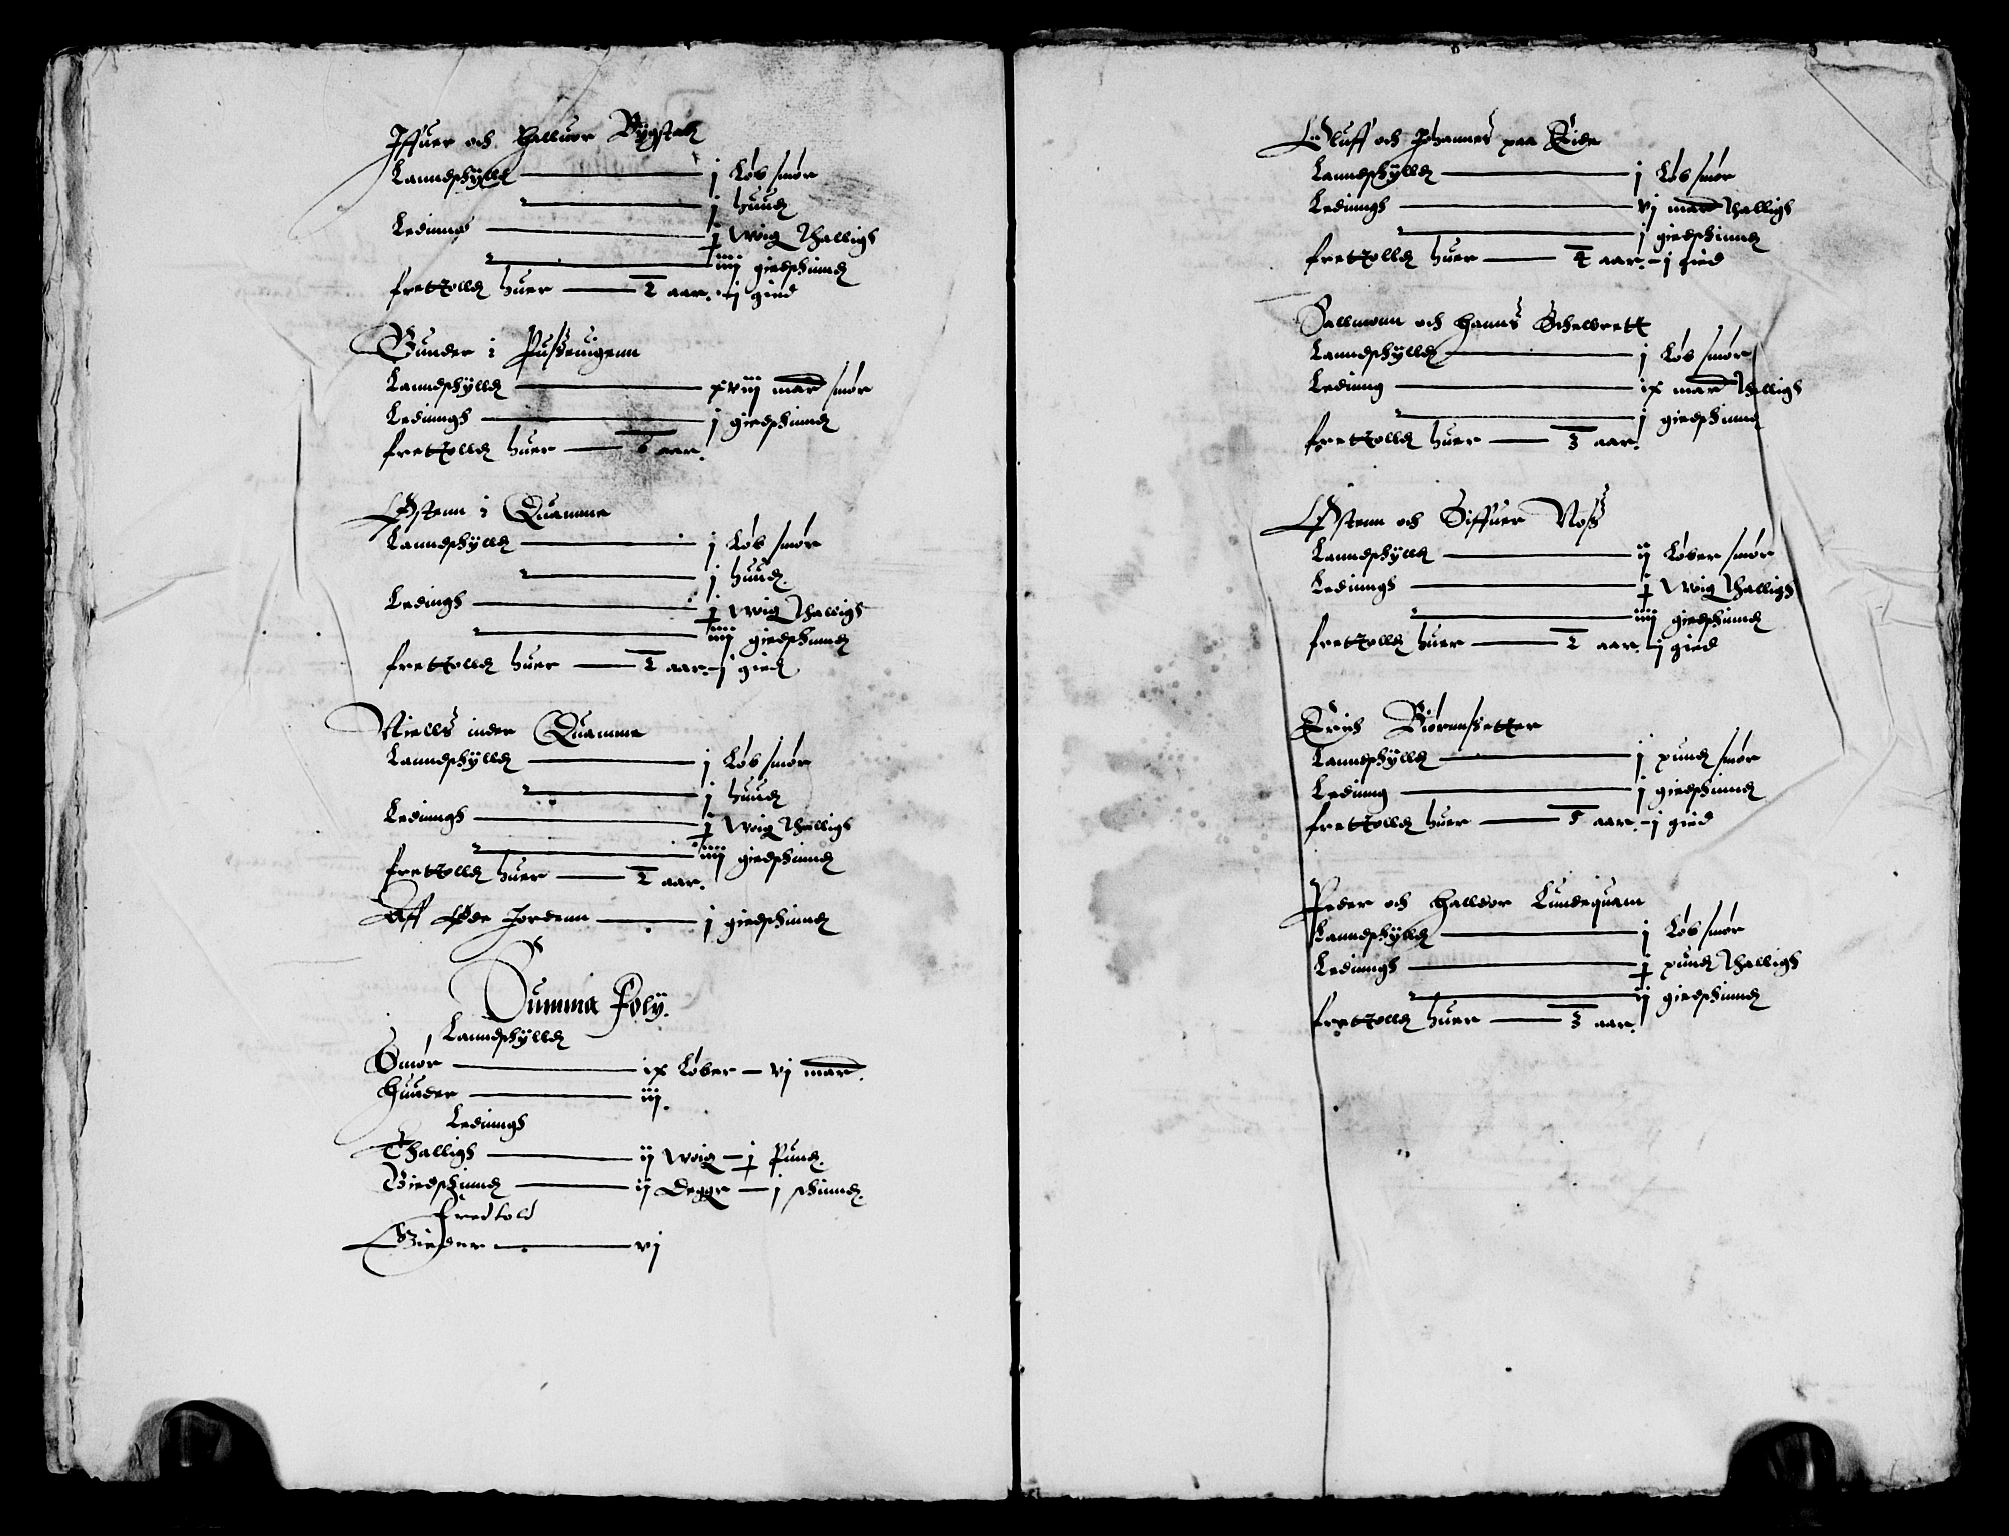 Iffuer och Halluor Bygstad
Lanndschylld — j Løb smør
— j huud
Ledinng — ɉ Woig thalligh
— iiij giedschinnd
frettolld huer — 2 aar. — j gied
Gunder i Pusseuigenn
Lanndschylld — xviij mar smør
Ledinngh — j giedschinnd
frettolld huer — 6 aar.
Østenn i Quamme
Lanndschylld — j Løb smør
— j huud
Ledingh — ɉ Woig thalligh
— iiij giedschinnd
frettolld huer — 2 aar. — j gied
Niells inder Quamme
Lanndschylld — j Løb smør
— j huud
Ledinngh — ɉ Woig thalligh
— iiij giedschinnd
frettolld huer — 2 aar.
Aff Øde Jordenn — j giedschinnd
Summa Foly.
Lanndschylld
Smør — ix Løber — vj mar.
Huuder — iij.
Ledinngh
Thalligh — ij Woig — ɉ Pund.
Giedschinnd — ij Deger — j schinnd.
fredtold
Gieder — vj
Oluff och Johannes paa Eide
Lanndschylld — j Løb smør
Ledinngh — vj mar thalligh
— j giedschinnd
frettolld huer — 4 aar. — j gied
Sallmonn och Hanns Schelbrett
Lanndschylld — j Løb smør
Ledinng — ix mar thalligh
— j giedschinnd
frettolld huer — 3 aar.
Østenn och Siffuer Noss
Lanndschylld — ij Løber smør
Ledinngh — ɉ Woig thalligh
— iiij giedschinnd
frettolld huer — 2 aar. — j gied
Erich Biørnnssetter
Lanndschylld — j pund smør
Ledinng — j giedschinnd
frettolld huer — 5 aar. — j gied
Peder och Halldor Lundequam
Lanndschylld — j Løb smør
Ledinngh — ɉ pund thalligh
— ij giedschinnd
frettolld huer — 3 aar.